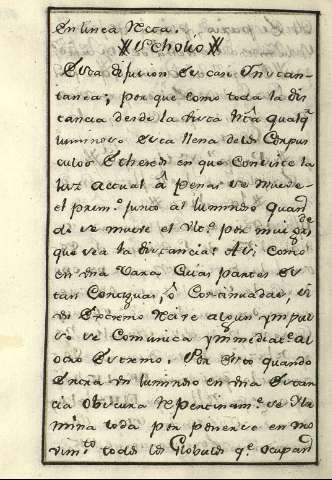 en linea Recta.
Scholio
Esta difucion es casi Instan-
tanea; porque como toda la dis-
tancia desde la vista hta qualqr
luminoso esta llena de los Corpus-
culos Ethereos en que Consiste la
luz actual â penas se mueve
el prim.o junto al luminoso quando
se mueve el Vlt.o por mui grde
que sea la distancia: Asi como
en vna Vara Cuias partes es-
tan Contiguas, ô Continuadas, si
en el extremo Recive algun ympul-
so se Comunica ymmediatte al
otro extremo. Por esto quando
entra vn luminoso en vna estan-
cia obscura Repentinam.te se Ylu-
mina toda por ponerse en mo-
vim.to todos los Globulos q.e ocupan